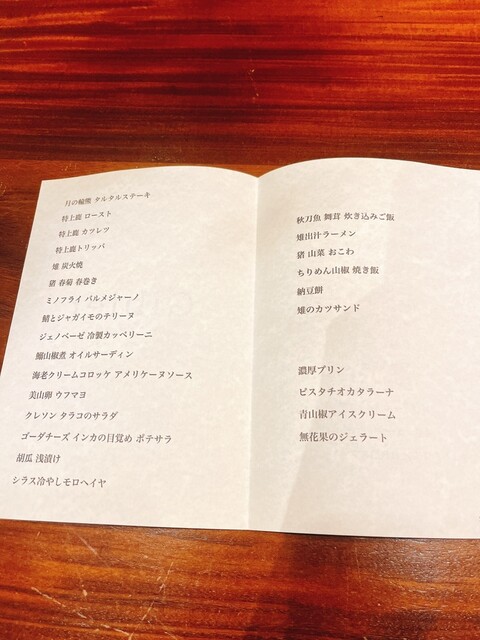 月の輪熊 タルタルステーキ
特上鹿 ロースト
特上鹿 カツレツ
特上鹿トリッパ
雉 炭火焼
猪 春菊 春巻き
ミノフライ パルメジャーノ
鯖とジャガイモのテリーヌ
ジェノベーゼ 冷製カッペリーニ
鰯山椒煮 オイルサーディン
海老クリームコロッケ アメリケーヌソース
美山卵 ウフマヨ
クレソン タラコのサラダ
ゴーダチーズ インカの目覚め ポテサラ
胡瓜 浅漬け
シラス冷やしモロヘイヤ
秋刀魚 舞茸 炊き込みご飯
雉出汁ラーメン
猪 山菜 おこわ
ちりめん山椒 焼き飯
納豆餅
雉のカツサンド
濃厚プリン
ピスタチオカタラーナ
青山椒アイスクリーム
無花果のジェラート